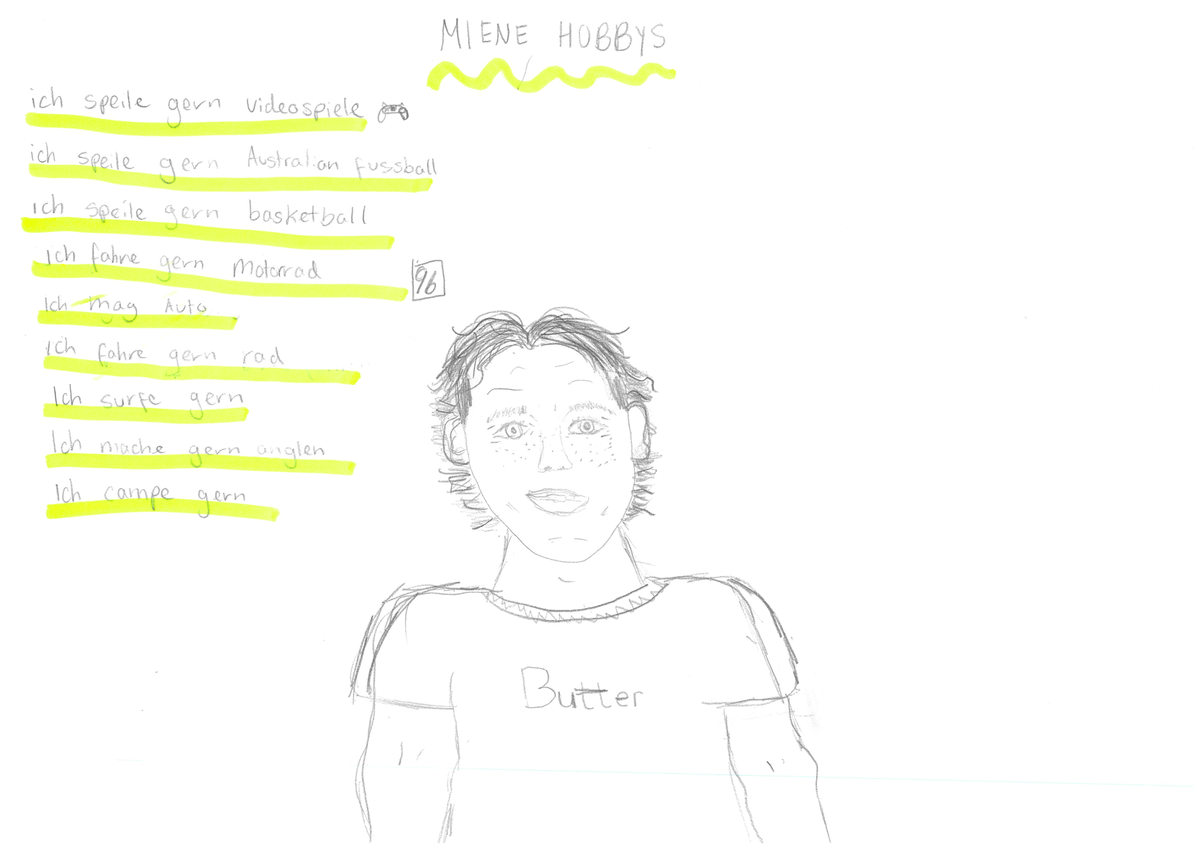 MIENE HOBBYS
ich speile gern videospiele
ich speile gern Australian fussball
ich speile gern basketball
ich fahre gern Motorrad
96
Ich mag Auto
Ich fahre gern rad
Ich surfe gern
Ich mache gern anglen
Ich campe gern
Butter